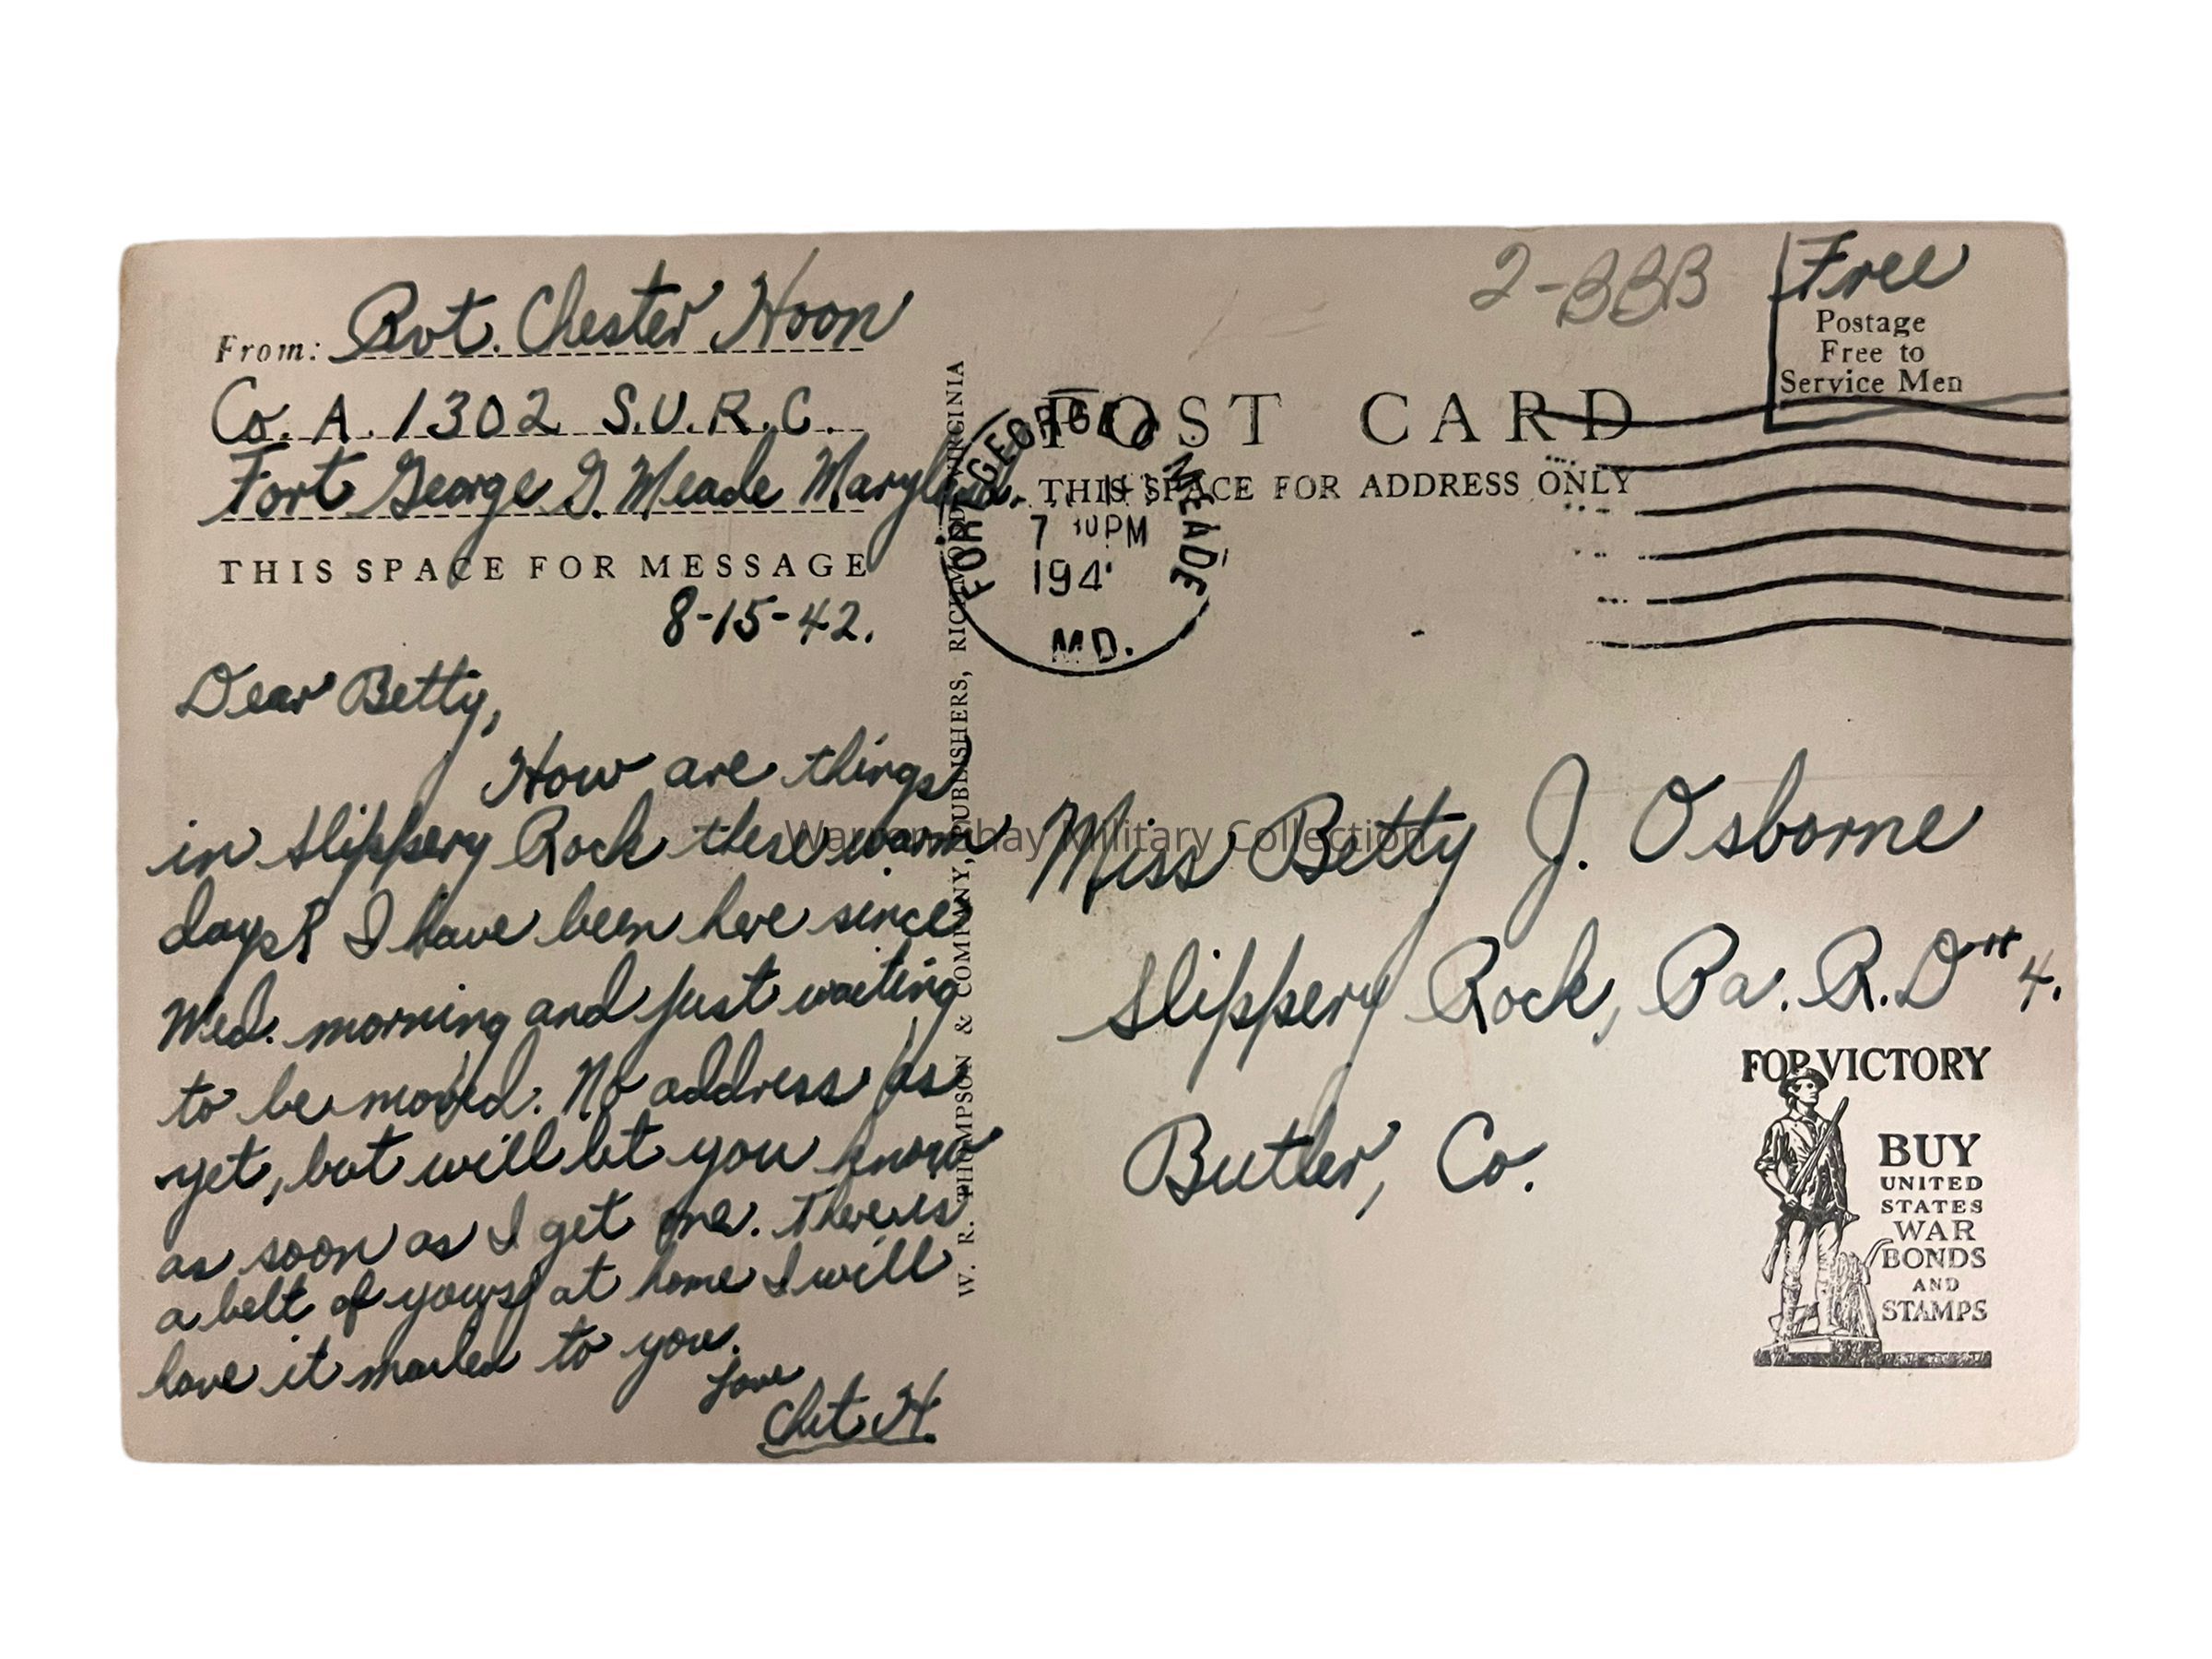 From: Pvt. Chester Hoon
Co. A. 1302 S.U.R.C.
Fort George G. Meade Maryland.
THIS SPACE FOR MESSAGE
8-15-42.
Dear Betty,
How are things
in Slippery Rock these warm
days? I have been here since
Wed. morning and just waiting
to be moved. No address as
yet, but will let you know
as soon as I get one. There is
a belt of yours at home I will
have it mailed to you.
Love
Chet H.
W. R. THOMPSON & COMPANY, PUBLISHERS, RICHMOND, VIRGINIA
2-BBB
Free
Postage
Free to
Service Men
POST CARD
THIS SPACE FOR ADDRESS ONLY
FORT GEORGE G MEADE
7 30PM
194
MD.
Miss Betty J. Osborne
Slippery Rock, Pa. R.D #4.
Butler, Co.
FOR VICTORY
BUY
UNITED
STATES
WAR
BONDS
AND
STAMPS
Warren Shay Military Collection